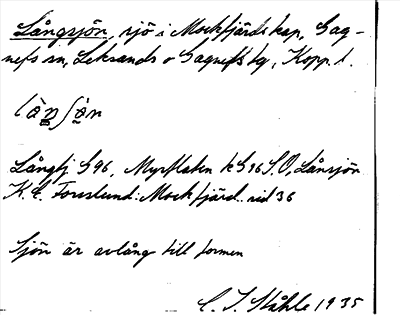 Långsjön, sjö i Mockfjärds kap, Gag-
nefs sn, Leksands o Gagnefs tg, Kopp. l.
Långtj G96, Myrstaken k S, Lånsjön
K. E. Forslund: Mockfjärd.. sid 36
Sjön är avlång till formen
C. I. Ståhle 1935